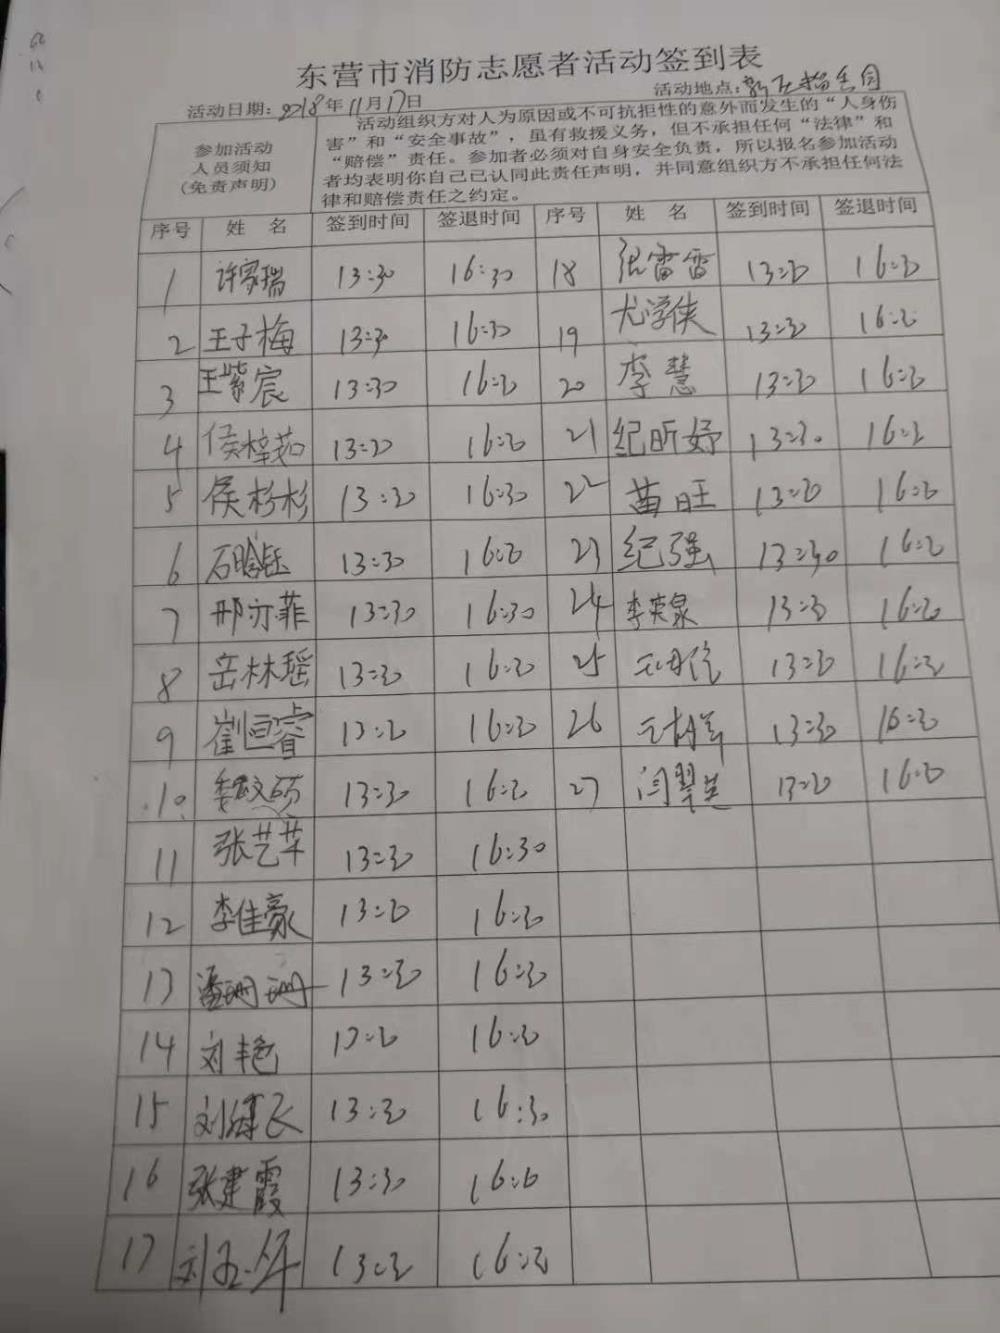 东营市消防志愿者活动签到表
活动日期：2018年11月17日 活动地点：
参加活动
人员须知
(免责声明)
活动组织方对人为原因或不可抗拒性的意外而发生的“人身伤
害”和“安全事故”，虽有救援义务，但不承担任何“法律”和
“赔偿”责任。参加者必须对自身安全负责，所以报名参加活动
者均表明你自己已认同此责任声明，并同意组织方不承担任何法
律和赔偿责任之约定。
序号 姓名 签到时间 签退时间 序号 姓名 签到时间 签退时间
1 许家瑞 13:30 16:30 18 张雷雷 13:30 16:30
2 王子梅 13:30 16:30 19 尤学侠 13:30 16:30
3 王紫宸 13:30 16:30 20 李慧 13:30 16:30
4 侯梓茹 13:30 16:30 21 纪昕妤 13:30 16:30
5 侯杉杉 13:30 16:30 22 苗旺 13:30 16:30
6 石晗钰 13:30 16:30 23 纪强 13:30 16:30
7 邢亦菲 13:30 16:30 24 李英泉 13:30 16:30
8 岳林瑶 13:30 16:30 25 13:30 16:30
9 崔恒睿 13:30 16:30 26 13:30 16:30
10 13:30 16:30 27 闫翠兰 13:30 16:30
11 张艺苹 13:30 16:30
12 李佳豪 13:30 16:30
13 潘珊珊 13:30 16:30
14 刘艳 13:30 16:30
15 刘继飞 13:30 16:30
16 张建霞 13:30 16:30
17 13:30 16:30